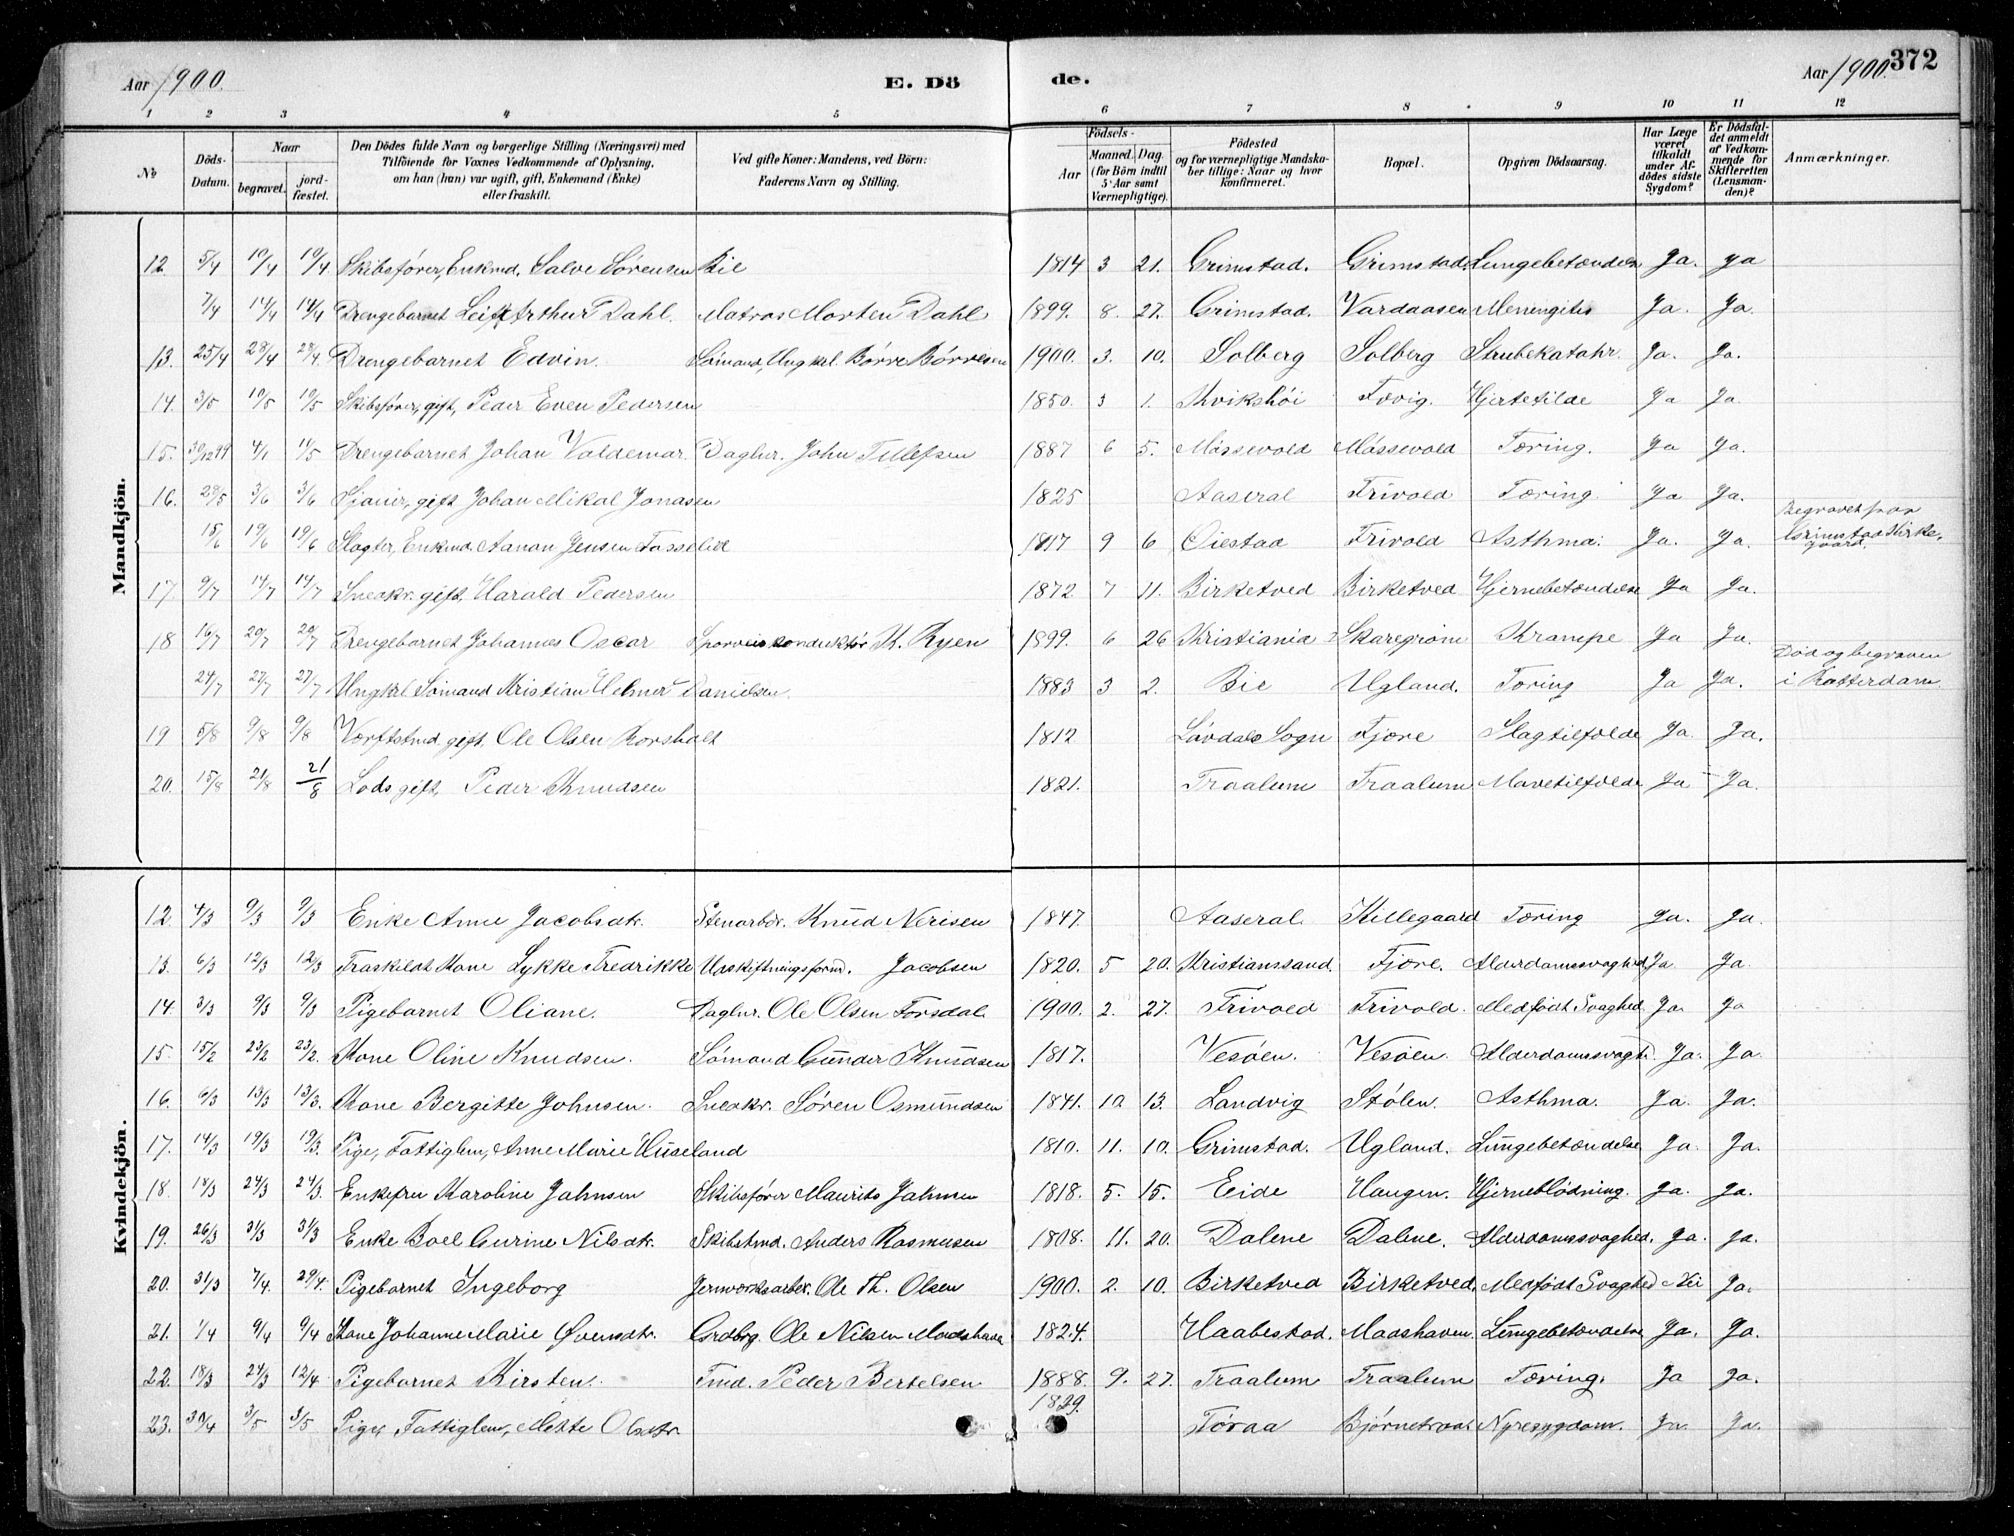 Aar 1900. E. Dö de. Aar 1900. 372
1 2 3 4 5 6 7 8 9 10 11 12
№ Döds-Datum. Naar begravet. jordfæstet. Den Dödes fulde Navn og borgerlige Stilling (Næringsvei) med Tilföiende for Voxnes Vedkommende af Oplysning, om han (hun) var ugift, gift, Enkemand (Enke) eller fraskilt. Ved gifte Koner: Mandens, ved Börn: Faderens Navn og Stilling. Födsels- Aar Maaned. Dag. (for Börn indtil 5 Aar samt Værnepligtige). Födested og for værnepligtige Mandskaber tillige: Naar og hvor konfirmeret. Bopæl. Opgiven Dödsaarsag. Har Læge været tilkaldt under Afdödes sidste Sygdom? Er Dödsfaldet anmeldt af Vedkommende for Skifteretten (Lensmanden)? Anmærkninger.
Mandkjön.
12. 5/4 10/4 10/4 Skibsfører, Enkmd. Salve Sørensen Bie 1814 3 21. Grimstad. Grimstad. Lungebetændelse Ja. Ja
7/4 14/4 14/4 Drengebarnet Leif Arthur Dahl. Matros Morten Dahl 1899. 8. 27. Grimstad. Vardaasen Menengitis Ja. Ja.
13. 25/4 28/4 28/4 Drengebarnet Edvin. Sømand, Ungkal. Børre Børresen 1900. 3. 10. Solberg Solberg Strubekatahr. Ja. Ja.
14. 3/5 10/5 10/5 Skibsfører, gift, Peder Even Pedersen 1850. 3 1. Kvikshöi Fævig. Hjertetilde Ja Ja.
15. 30/12 99 4/1 11/5 Drengebarnet Johan Valdemar. Daglnr. John Tellefsen 1887 6 5. Møssevold Møssevold Tæring. Ja Ja.
16. 28/5 3/6 3/6 Sjauer, gift Johan Mikal Jonasen 1825 Aaseral Frivold Tæring. Ja Ja.
15/6 19/6 19/6 Slagter, Enkmd. Aanon Jensen Fasselid 1817 9 6 Öiestad Frivold Asthma. Ja. Ja. Begravet paa Grimstad Kirkegaard.
17. 9/7 14/7 14/7 Snedkr. gift, Harald Pedersen 1872 7 11. Birketved Birketved Hjernebetændelse Ja Ja.
18 16/7 20/7 20/7 Drengebarnet Johannes Oscar Sporveiskonduktør K. Ryen 1899. 6 26 Kristiania Skaregrøm Krampe Ja Ja.
24/7 27/7 27/7 Ungkl. Sømand Kristian Helmer Danielsen. 1883 3 2. Bie Ugland. Tæring Ja Ja. Død og begraven i Rotterdam.
19 5/8 9/8 9/8 Værftstmd. gift. Ole Olsen Rorsholt 1812 Løvdals Sogn Fjære Slagtilfælde Ja. Ja.
20. 15/8 21/8 21/8 Lods gift, Peder Knudsen 1821. Traalum Traalum Mavetilfælde Ja Ja.
Kvindekjön.
12. 4/3 9/3 9/3 Enke Anne Jacobsdtr. Stenarbdr. Knud Nerisen 1847. Aaseral. Killegaard Tæring Ja. Ja.
13. 6/3 12/3 12/3 Fraskildt Kone Lykke Fredrikke Udskiftningsformd. Jacobsen 1820. 5 20. Kristianssand. Fjære. Alderdomssvaghed Ja Ja.
14. 3/3 9/3 9/3 Pigebarnet Oliane. Daglnr. Ole Olsen Forsdal. 1900. 2. 27. Frivold Frivold. Medfødt Svaghed Ja. Ja
15. 15/2 23/2 23/2. Kone Oline Knudsen. Sømand Gunder Knudsen 1817. Vesøen. Vesøen. Alderdomssvagh. Ja. Ja.
16. 6/3 13/3 13/3. Kone Bergitte Johnsen. Snedkr. Søren Osmundsen 1841. 10. 13. Landvig Stølen. Asthma. Ja. Ja.
17. 14/3 19/3 19/3. Pige, Fattiglem, Anne Marie Huseland 1810. 11. 10. Grimstad. Ugland. Lungebetændelse Ja. Ja.
18. 18/3 24/3 24/3. Enkefru Karoline Jahnsen Skibsfører Maurits Jahnsen 1818. 5. 15. Eide Haugen. Hjerneblødning. Ja. Ja.
19. 26/3 31/3 31/3 Enke Boel Gurine Nilsdtr. Skibstmd. Anders Rasmusen 1808. 11. 20. Dalene Dalene. Alderdomssvaghed. Ja. Ja.
20. 31/3 7/4. 29/4. Pigebarnet Ingeborg Jernværksarbdr. Ole Th. Olsen 1900. 2. 10. Birketved Birketved. Medfødt Svaghed Nei Ja.
21. 1/4 9/4 9/4 Kone Johanne Marie Svendtr. Grdbrg. Ole Nilsen Modshavn 1824. Haabestad. Modshaven Lungebetændelse Ja. Ja.
22. 18/3 24/3 12/4 Pigebarnet Kirsten. Tmd. Peder Bertelsen 1888. 9. 27. Traalum Traalum Tæring. Ja Ja.
23. 30/4 3/5 3/5 Pige, Fattiglem, Mekte Olsdtr. 1829. Føraa Nyresygdom. Ja. Ja.